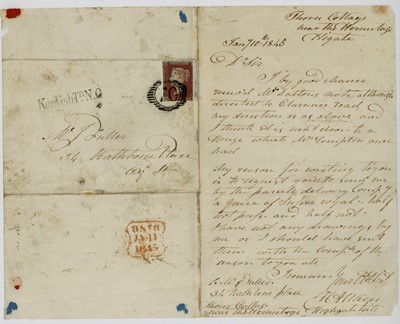 Thorn Cottage
near the Hermitage
Higate
Jany 10th 1845
Dr Sir
I by good chance
receivd Mr Daltons note altho
directed to Clarence road
my direction is as above and
I think it is next door to a
House which Mr Compton once
had
My reason for writing to you
is to request you to send me
by the parcels delivery Company
a quire of royal half
hot press and half not
I have not any drawings by
me or I should have sent
them with the of the
season to you all
I remain
Mr Fuller
34 Rathbone place
Thorn Cottage
near the Hermitage Highgate
KentishTN.N.O
Mr Fuller
34 Rathbone Place
8NT8
JA11
1845